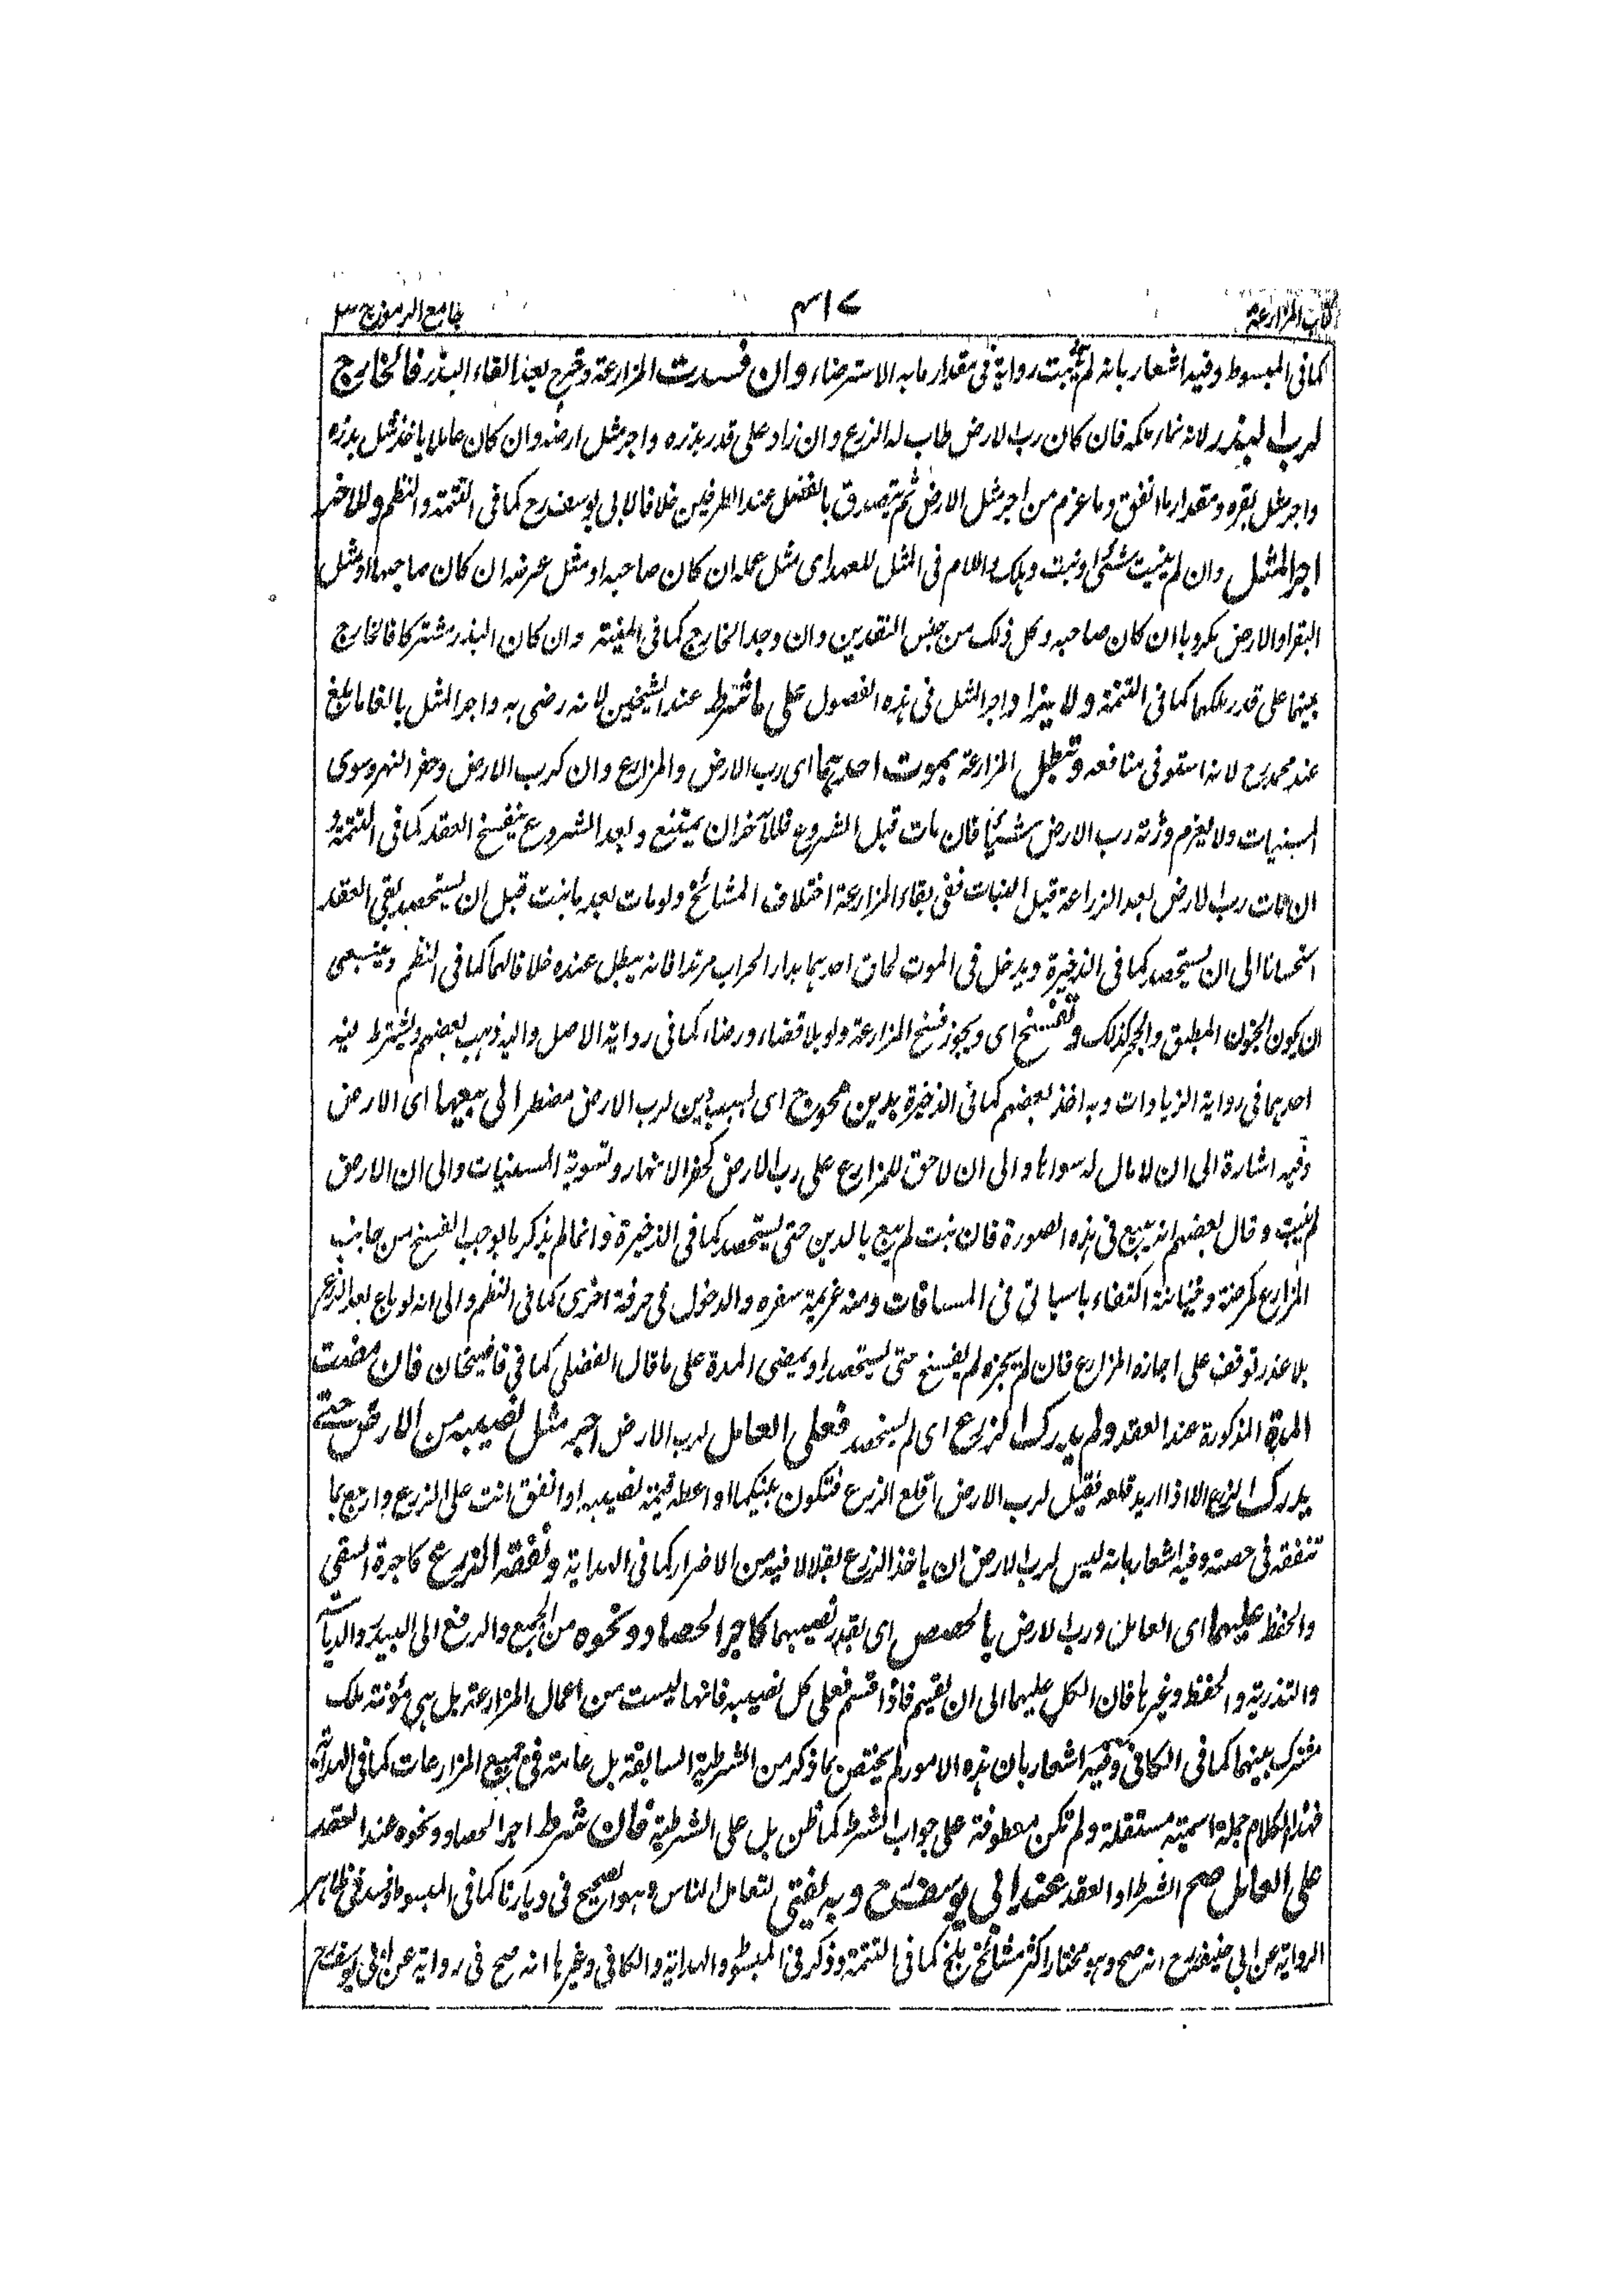 كتاب المزارعة ٤١٧ جامع الرموز ج ٣
كما فى المبسوط وفيه اشعار بانه لم يثبت رواية فى مقدار ما به الاسترضاء وان فسدت المزارعة وقع بعد القاء البذر فالخارج
لرب البذر لانه نماء ملكه فان كان رب الارض طاب له الزرع وان زاد على قدر بذره واجر مثل ارضه وان كان عاملا ياخذ مثل بذره
واجر مثل بقره ومقدار ما انفق وما غرم من اجر مثل الارض ثم يتصدق بالفضل عند الطرفين خلافا لابى يوسف رح كما فى التتمة والنظم وللآخر
اجر المثل وان لم ينبت شئى او نبت وهلك واللام فى المثل للعهد اى مثل عمله ان كان صاحبه او مثل عرضه ان كان صاحبها او مثل
البقر او الارض مكروبا ان كان صاحبه وكل ذلك من جنس النقدين وان وجد الخارج كما فى المغنية وان كان البذر مشتركا فالخارج
بينهما على قدر ملكهما كما فى التتمة ولا يزاد اجر المثل فى هذه الفصول على ما شرط عند الشيخين لانه رضى به واجر المثل بالغا ما بلغ
عند محمد رح لانه استوفى منافعه وتبطل المزارعة بموت احدهما اى رب الارض والمزارع وان كرب الارض وحفر النهر وسوى
المسنيات ولا يغرم ورثة رب الارض شيئا فان مات قبل الشروع فللآخر ان يمتنع وبعد الشروع ينفسخ العقد كما فى التتمة و
ان مات رب الارض بعد الزراعة قبل النبات ففى بقاء المزارعة اختلاف المشائخ ولو مات بعد ما نبت قبل ان يستحصد يبقى العقد
استحسانا الى ان يستحصد كما فى الذخيرة ويدخل فى الموت لحاق احدهما بدار الحراب مرتدا فانه يبطل عنده خلافا لهما كما فى النظم وينبغى
ان يكون الجنون المطبق والحجر كذلك وتفسخ اى ويجوز فسخ المزارعة ولو بلا قضاء ورضاء كما فى رواية الاصل واليه ذهب بعضهم ويشترط فيه
احدهما فى رواية الزيادات وبه اخذ بعضهم كما فى الذخيرة بدين محوج اى بسبب دين لرب الارض مضطر الى بيعها اى الارض
وفيه اشارة الى ان لا مال له سواها والى ان لا حق للمزارع على رب الارض كحفر الانهار وتسوية المسنيات والى ان الارض
لم ينبت وقال بعضهم انه يبيع فى هذه الصورة فان نبت لم يبع بالدين حتى يستحصد كما فى الذخيرة وانما لم يذكر ما يوجب الفسخ من جانب
المزارع كمرضه وخيانته اكتفاء بما سياتى فى المساقات ومنه عزيمة سفره والدخول فى حرفة اخرى كما فى النظم والى انه لو باع بعد الزرع
بلا عذر توقف على اجازة المزارع فان لم يجزه لم يفسخ حتى يستحصد او يمضى المدة على ما قال الفضلى كما فى قاضيخان فان مضت
المدة المذكورة عند العقد ولم يدرك الزرع اى لم يستحصد فعلى العامل لرب الارض اجر مثل نصيبه من الارض حتى
يدرك الزرع الا اذا اريد قلعه فقيل لرب الارض اقلع الزرع فتكون بينكما او اعطه قيمة نصيبه او انفق انت على الزرع وارجع بما
تنفقه فى حصته وفيه اشعار بانه ليس لرب الارض ان ياخذ الزرع بقلا لما فيه من الاضرار كما فى الهداية ونفقة الزرع كاجرة السقى
والحفظ عليهما اى العامل ورب الارض بالحصص اى بقدر نصيبهما كاجر الحصاد ونحوه من الجمع والرفع الى البيدر والدياسة
والتذرية والحفظ وغيرها فان الكل عليهما الى ان يقسم فاذا قسم فعلى كل نصيبه فانها ليست من اعمال المزارعة بل هى مؤنة ملك
مشترك بينهما كما فى الكافى وفيه اشعار بان هذه الامور لم يختص بما ذكر من الشرطية السابقة بل عامة فى جميع المزارعات كما فى الهداية
فهذا الكلام جملة اسمية مستقلة ولم تكن معطوفة على جواب الشرط كما ظن بل على الشرطية فان شرط اجر الحصاد ونحوه عند العقد
على العامل صح الشرط او العقد عند ابى يوسف رح وبه يفتى لتعامل الناس وهو الصحيح فى ديارنا كما فى المبسوط وفسد فى ظاهر
الرواية عن ابى حنيفة رح انه صح وهو مختار اكثر مشائخ بلخ كما فى التتمة وذكر فى المبسوط والهداية والكافى وغيرها انه صح فى رواية عن ابى يوسف رح